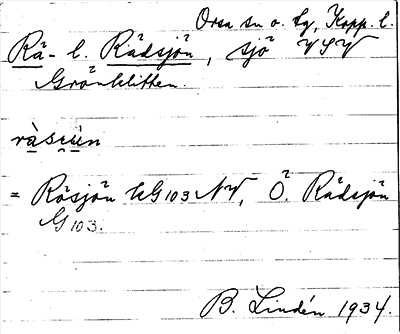 Orsa sn o. tg, Kopp. l.
Rå- l. Rådsjön, sjö VSV
Grönklitten.
ràsu̯ùn
= Råsjön kG103 NV, Ö. Rådsjön
G103.
B. Lindén 1934.